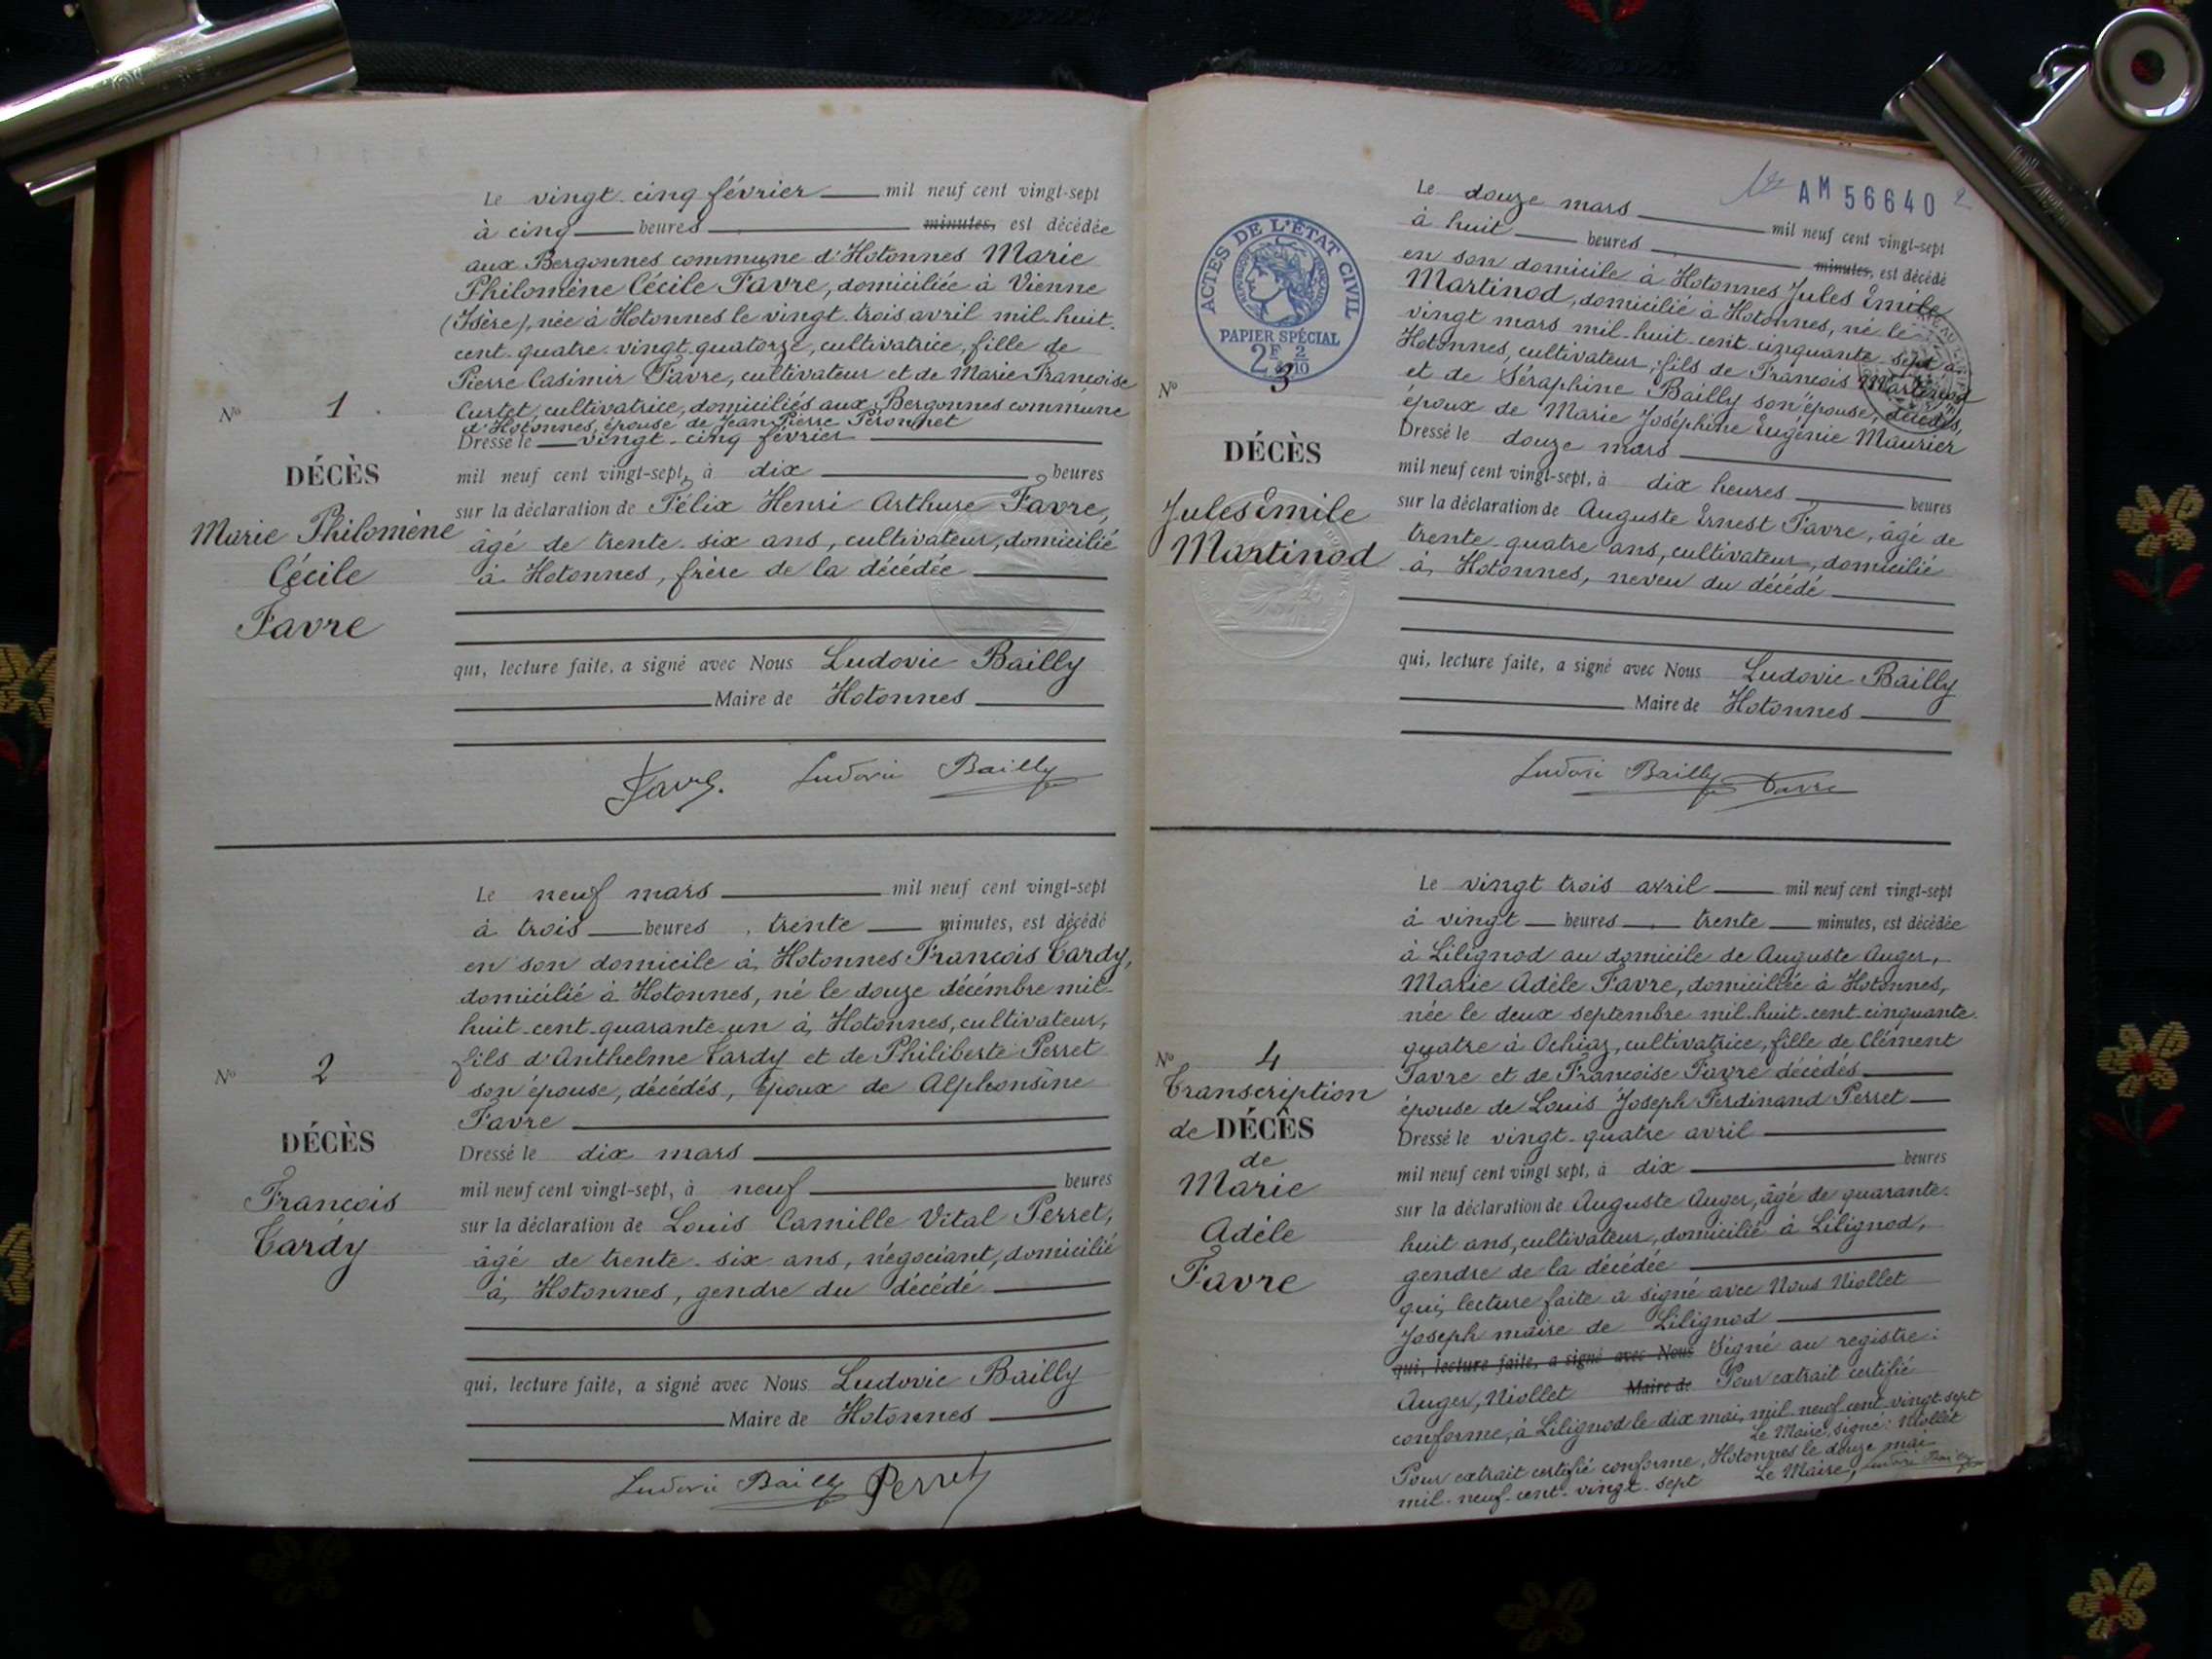 Le vingt-cinq février mil neuf cent vingt-sept
à cinq heures minutes, est décédée
aux Bergonnes commune d'Hotonnes Marie
Philomène Cécile Favre, domiciliée à Vienne
(Isère), née à Hotonnes le vingt-trois avril mil-huit-
cent-quatre-vingt-quatorze, cultivatrice, fille de
Pierre Casimir Favre, cultivateur et de Marie Françoise
Curtet, cultivatrice, domiciliés aux Bergonnes commune
d'Hotonnes, épouse de Jean Pierre Péronnet
Dressé le vingt-cinq février
mil neuf cent vingt-sept, à dix heures
sur la déclaration de Félix Henri Arthure Favre,
âgé de trente-six ans, cultivateur, domicilié
à Hotonnes, frère de la décédée
qui, lecture faite, a signé avec Nous Ludovic Bailly
Maire de Hotonnes
Favre. Ludovic Bailly
No 1
DÉCÈS
Marie Philomène
Cécile
Favre
Le neuf mars mil neuf cent vingt-sept
à trois heures, trente minutes, est décédé
en son domicile à Hotonnes François Tardy,
domicilié à Hotonnes, né le douze décembre mil-
huit-cent-quarante-un à Hotonnes, cultivateur,
fils d'Anthelme Tardy et de Philiberte Perret
son épouse, décédés, époux de Alphonsine
Favre
Dressé le dix mars
mil neuf cent vingt-sept, à neuf heures
sur la déclaration de Louis Camille Vital Perret,
âgé de trente-six ans, négociant, domicilié
à Hotonnes, gendre du décédé
qui, lecture faite, a signé avec Nous Ludovic Bailly
Maire de Hotonnes
Ludovic Bailly Perret
No 2
DÉCÈS
François
Tardy
AM 56640 2
ACTES DE L'ÉTAT CIVIL
RÉPUBLIQUE FRANÇAISE
PAPIER SPÉCIAL
2F 2/10
Le douze mars mil neuf cent vingt-sept
à huit heures minutes, est décédé
en son domicile à Hotonnes Jules Emile
Martinod, domicilié à Hotonnes, né le
vingt mars mil-huit-cent-cinquante-sept à
Hotonnes, cultivateur, fils de François Martinod
et de Séraphine Bailly son épouse, décédés,
époux de Marie Joséphine Eugénie Maurier
Dressé le douze mars
mil neuf cent vingt-sept, à dix heures heures
sur la déclaration de Auguste Ernest Favre, âgé de
trente-quatre ans, cultivateur, domicilié
à Hotonnes, neveu du décédé
qui, lecture faite, a signé avec Nous Ludovic Bailly
Maire de Hotonnes
Ludovic Bailly Favre
No 3
DÉCÈS
Jules Emile
Martinod
Le vingt trois avril mil neuf cent vingt-sept
à vingt heures trente minutes, est décédée
à Lilignod au domicile de Auguste Auger,
Marie Adèle Favre, domiciliée à Hotonnes,
née le deux septembre mil-huit-cent-cinquante-
quatre à Ochiaz, cultivatrice, fille de Clément
Favre et de Françoise Favre décédés
épouse de Louis Joseph Ferdinand Perret
Dressé le vingt-quatre avril
mil neuf cent vingt sept, à dix heures
sur la déclaration de Auguste Auger, âgé de quarante-
huit ans, cultivateur, domicilié à Lilignod,
gendre de la décédée
qui, lecture faite a signé avec Nous Niollet
Joseph maire de Lilignod
qui, lecture faite, a signé avec Nous Signé au registre:
Auger, Niollet Maire de Pour extrait certifié
conforme, à Lilignod le dix mai, mil-neuf-cent-vingt-sept
Le Maire, signé: Niollet
Pour extrait certifié conforme, Hotonnes le douze mai
mil-neuf-cent-vingt-sept Le Maire, Ludovic Bailly
No 4
Transcription
de DÉCÈS
de
Marie
Adèle
Favre